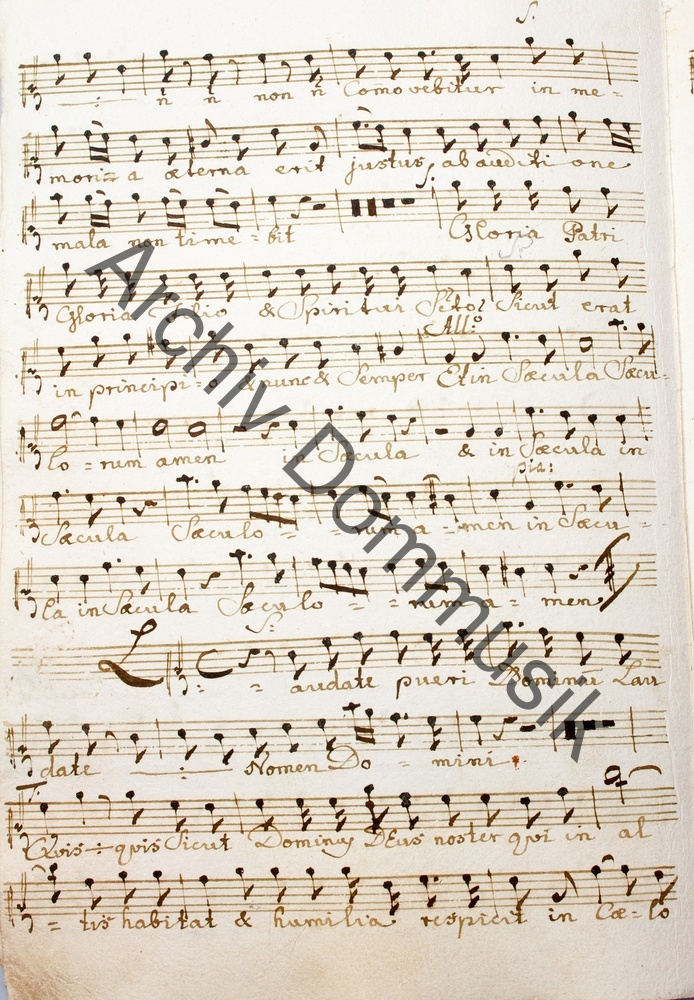 S.
ń ń non ń Comovebitur in me=
mori=a æterna erit justus ab auditione
S.
mala non time=bit Gloria Patri
Gloria Filio & Spiritui Scto Sicut erat
All:o
in principi=o & nunc & Semper Et in Sæcula Sæcu-
lo=rum amen in Sæcula & in Sæcula in
pia:
Sæcula Sæculo==rum a=men in Sæcu-
la in Sæcula Sæculo==rum a=men
S:
L==audate pueri Dominum Lau
date Nomen Do=mini
T:
Qvis=qvis Sicut Dominus DEus noster qvi in al
=tis habitat & humilia respicit in Cœ=lo
Archiv Dommusik